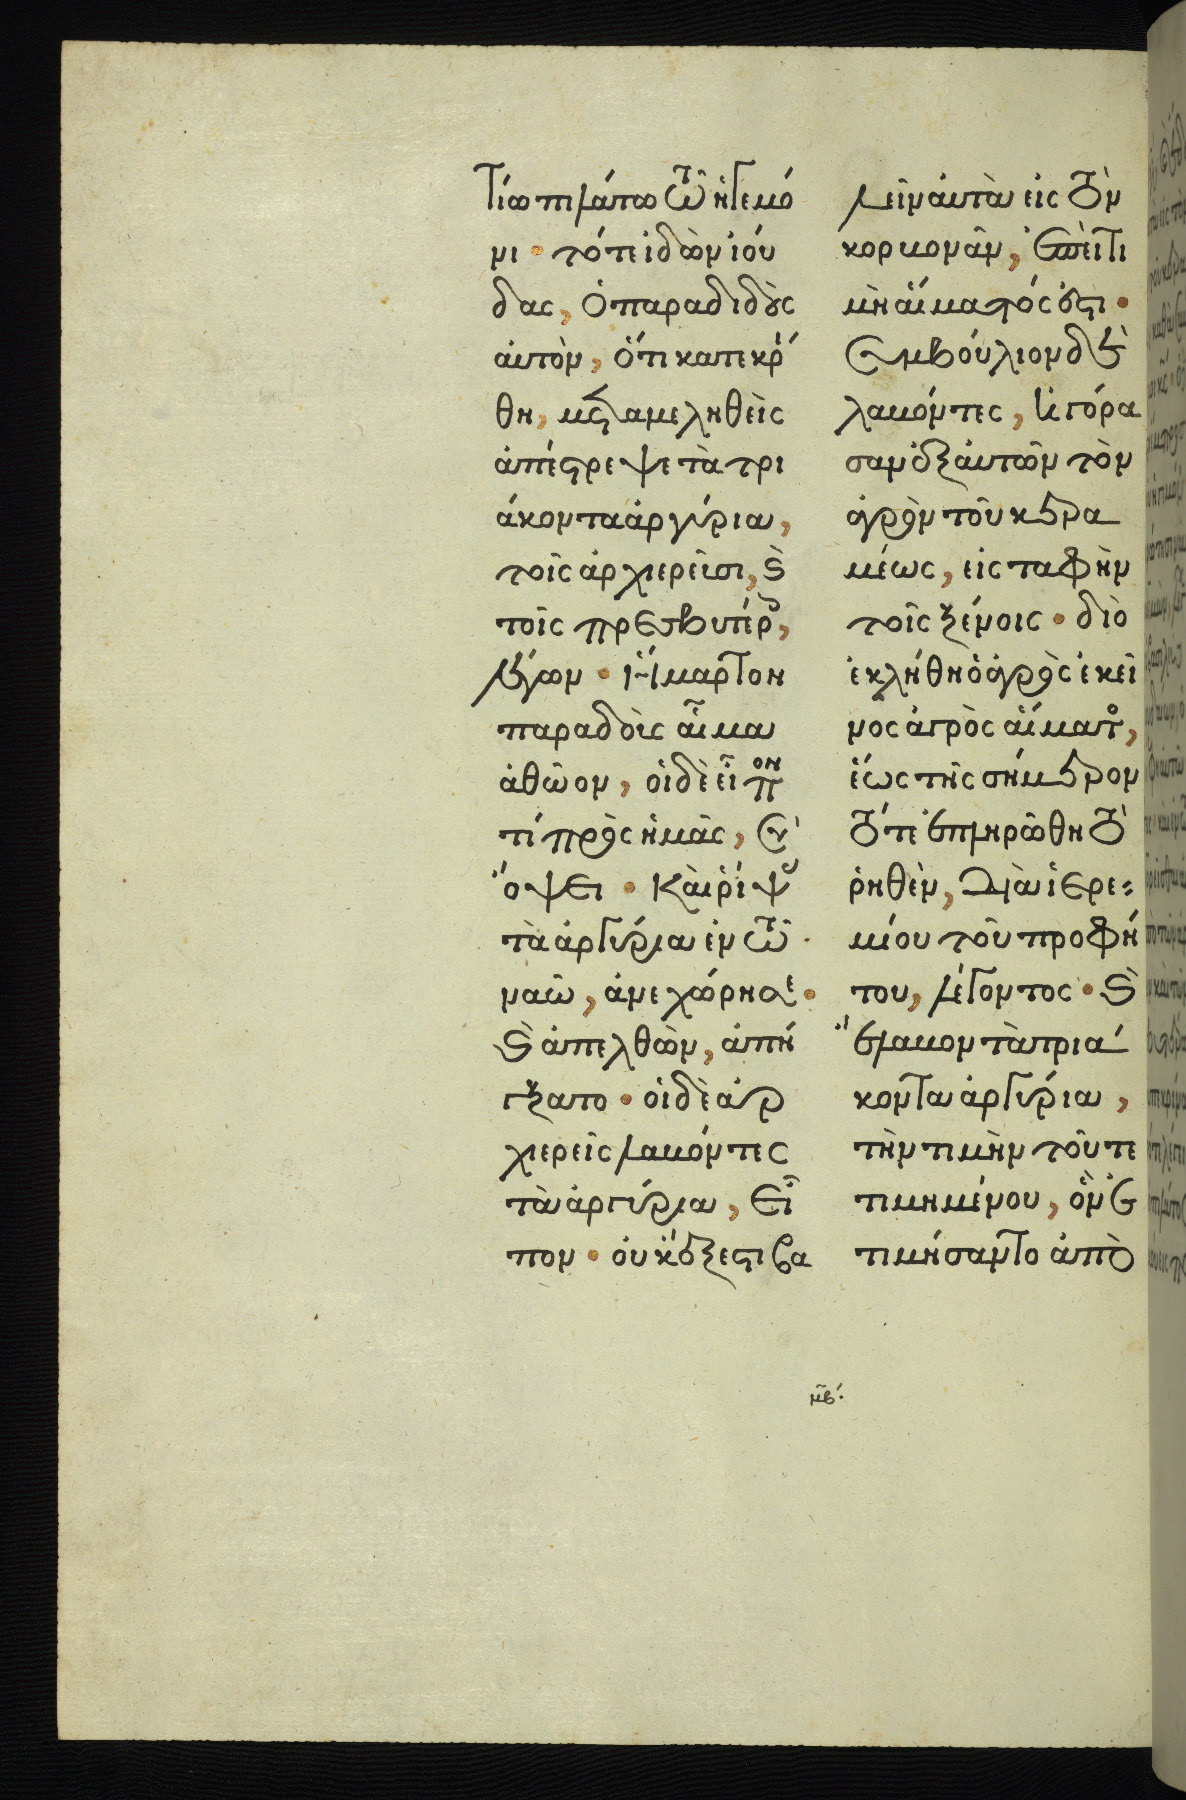 τίω πιλάτω τῶ ἡγεμό
νι · τότε ἰδὼν ἰού
δας, ὁ παραδιδοὺς
αὐτὸν, ὅτι κατεκρί
θη, μεταμεληθεὶς
ἀπέστρεψε τὰ τρι
άκοντα ἀργύρια,
τοῖς ἀρχιερεῦσι, καὶ
τοῖς πρεσβυτέρ,
λέγων · ἥμαρτον
παραδοὺς αἷμα
ἀθῶον, οἱ δὲ εἶπον
τί πρὸς ἡμᾶς, σὺ
ὄψει · καὶ ῥίψ
τὰ ἀργύρια ἐν τῶ
ναῶ, ἀνεχώρησε ·
καὶ ἀπελθὼν, ἀπή
γξατο · οἱ δὲ ἀρ
χιερεῖς λαβόντες
τὰ ἀργύρια, εἶ
πον · οὐκ ἔξεστι βα
λεῖν αὐτὰ εἰς τὸν
κορβονᾶν, ἐπεὶ τι
μὴ αἵματός ἐστι ·
συμβούλιον δὲ
λαβόντες, ἠγόρα
σαν ἐξ αὐτῶν τὸν
ἀγρὸν τοῦ κερα
μέως, εἰς ταφὴν
τοῖς ξένοις · διὸ
ἐκλήθη ὁ ἀγρὸς ἐκεῖ
νος ἀγρὸς αἵματο,
ἕως τῆς σήμερον
τότε ἐπληρώθη τὸ
ῥηθὲν, διὰ ἱερε=
μίου τοῦ προφή
του, λέγοντος · καὶ
ἔλαβον τὰ τριά
κοντα ἀργύρια,
τὴν τιμὴν τοῦ τε
τιμημένου, ὃν ἐ
τιμήσαντο ἀπὸ
μβ